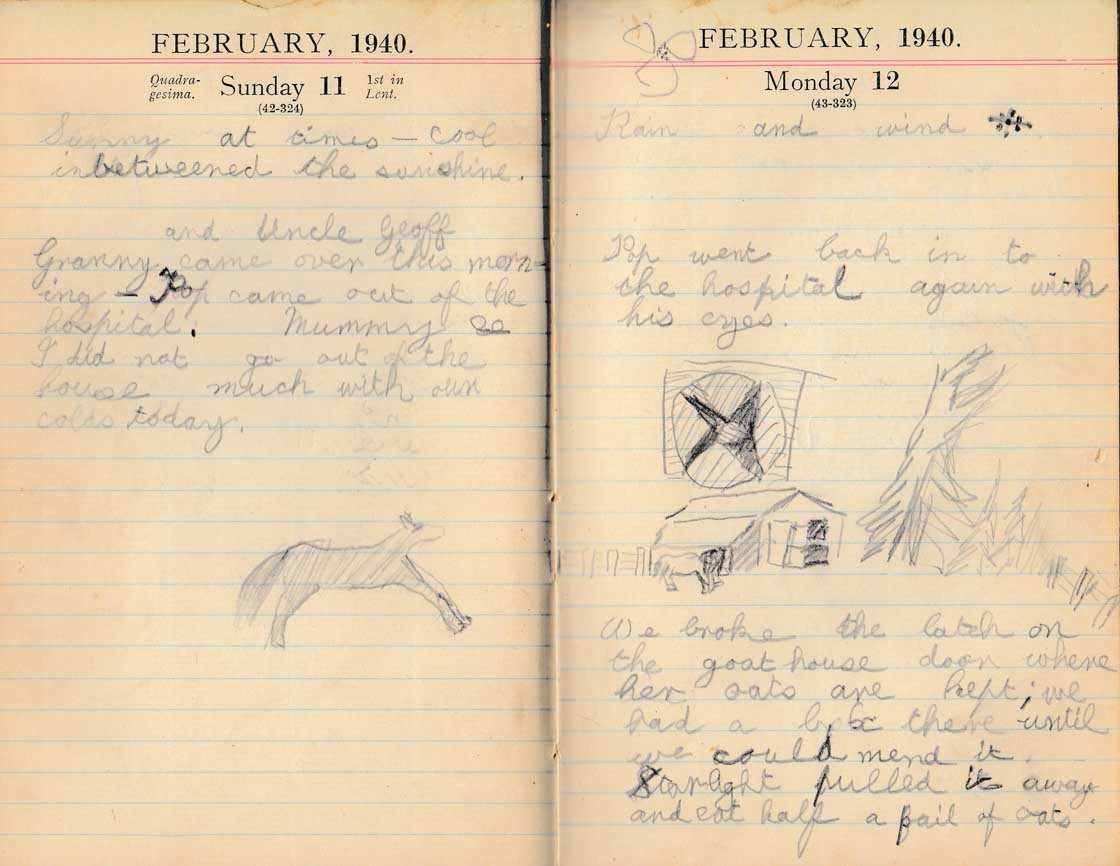 FEBRUARY, 1940.
Quadra-
gesima.
Sunday 11
1st in
Lent.
(42-324)
Sunny at times — cool
inbetweened the sunshine.
and Uncle Geoff
Granny came over this morn-
ing — Pop came out of the
hospital. Mummy &
I did not go out of the
house much with our
colds today.
FEBRUARY, 1940.
Monday 12
(43-323)
Rain and wind
Pop went back in to
the hospital again with
his eyes.
We broke the latch on
the goat house door where
her oats are kept; we
had a box there until
we could mend it.
Starlight pulled it away
and eat half a pail of oats.